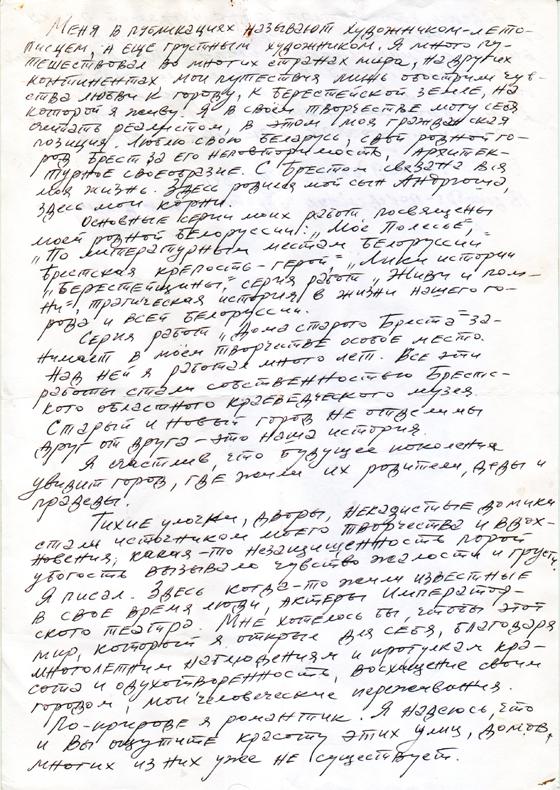 Меня в публикациях называют художником-лето-
писцем, а еще грустным художником. Я много пу-
тешествовал во многих странах мира, на других
континентах. Мои путешествия лишь обострили чув-
ства любви к городу, к Берестейской земле, на
которой я живу. Я в своём творчестве могу себя
считать реалистом, в этом моя гражданская
позиция. Люблю свою Беларусь, свой родной го-
род Брест за его неповторимость, архитек-
турное своеобразие. С Брестом связана вся
моя жизнь. Здесь родился мой сын Андрюша,
здесь мои корни.
Основные серии моих работ посвящены
моей родной Белоруссии: „Моё Полесье",
„По литературным местам Белоруссии"
Брестская крепость-герой", „Лики истории
„Берестейщины", серия работ „Живи и пом-
ни", трагическая история в жизни нашего го-
рода и всей Белоруссии.
Серия работ „Дома старого Бреста" за-
нимает в моём творчестве особое место.
Над ней я работал много лет. Все эти
работы стали собственностью Брестс-
кого областного краеведческого музея.
Старый и новый город не отделимы
друг от друга – это наша история.
Я счастлив, что будущее поколение
увидит город, где жили их родители, деды и
прадеды.
Тихие улочки, дворы, неказистые домики
стали источником моего творчества и вдох-
новения, какая-то незащищенность порой
убогость вызывало чувство жалости и грусти,
Я писал. Здесь когда-то жили известные
в свое время люди, актеры Император-
ского театра. Мне хотелось бы, чтобы этот
мир, который я открыл для себя, благодаря
многолетним наблюдениям и прогулкам кра-
сота и одухотворенность, восхищение своим
городом, мои человеческие переживания.
По-природе я романтик. Я надеюсь, что
и Вы ощутите красоту этих улиц, домов,
многих из них уже не существует.